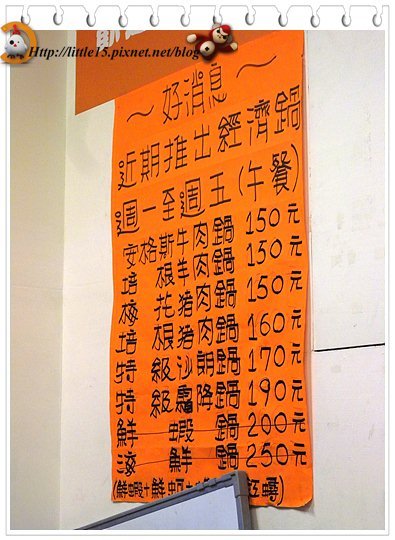 Http://little15.pixnet.net/blog
～好消息～
近期推出經濟鍋
週一至週五(午餐)
安格斯牛肉鍋150元
培根羊肉鍋150元
梅花豬肉鍋150元
培根豬肉鍋160元
特級沙朗鍋170元
特級霜降鍋190元
鮮蝦鍋200元
海鮮鍋250元
(鮮蝦+鮮蚵+